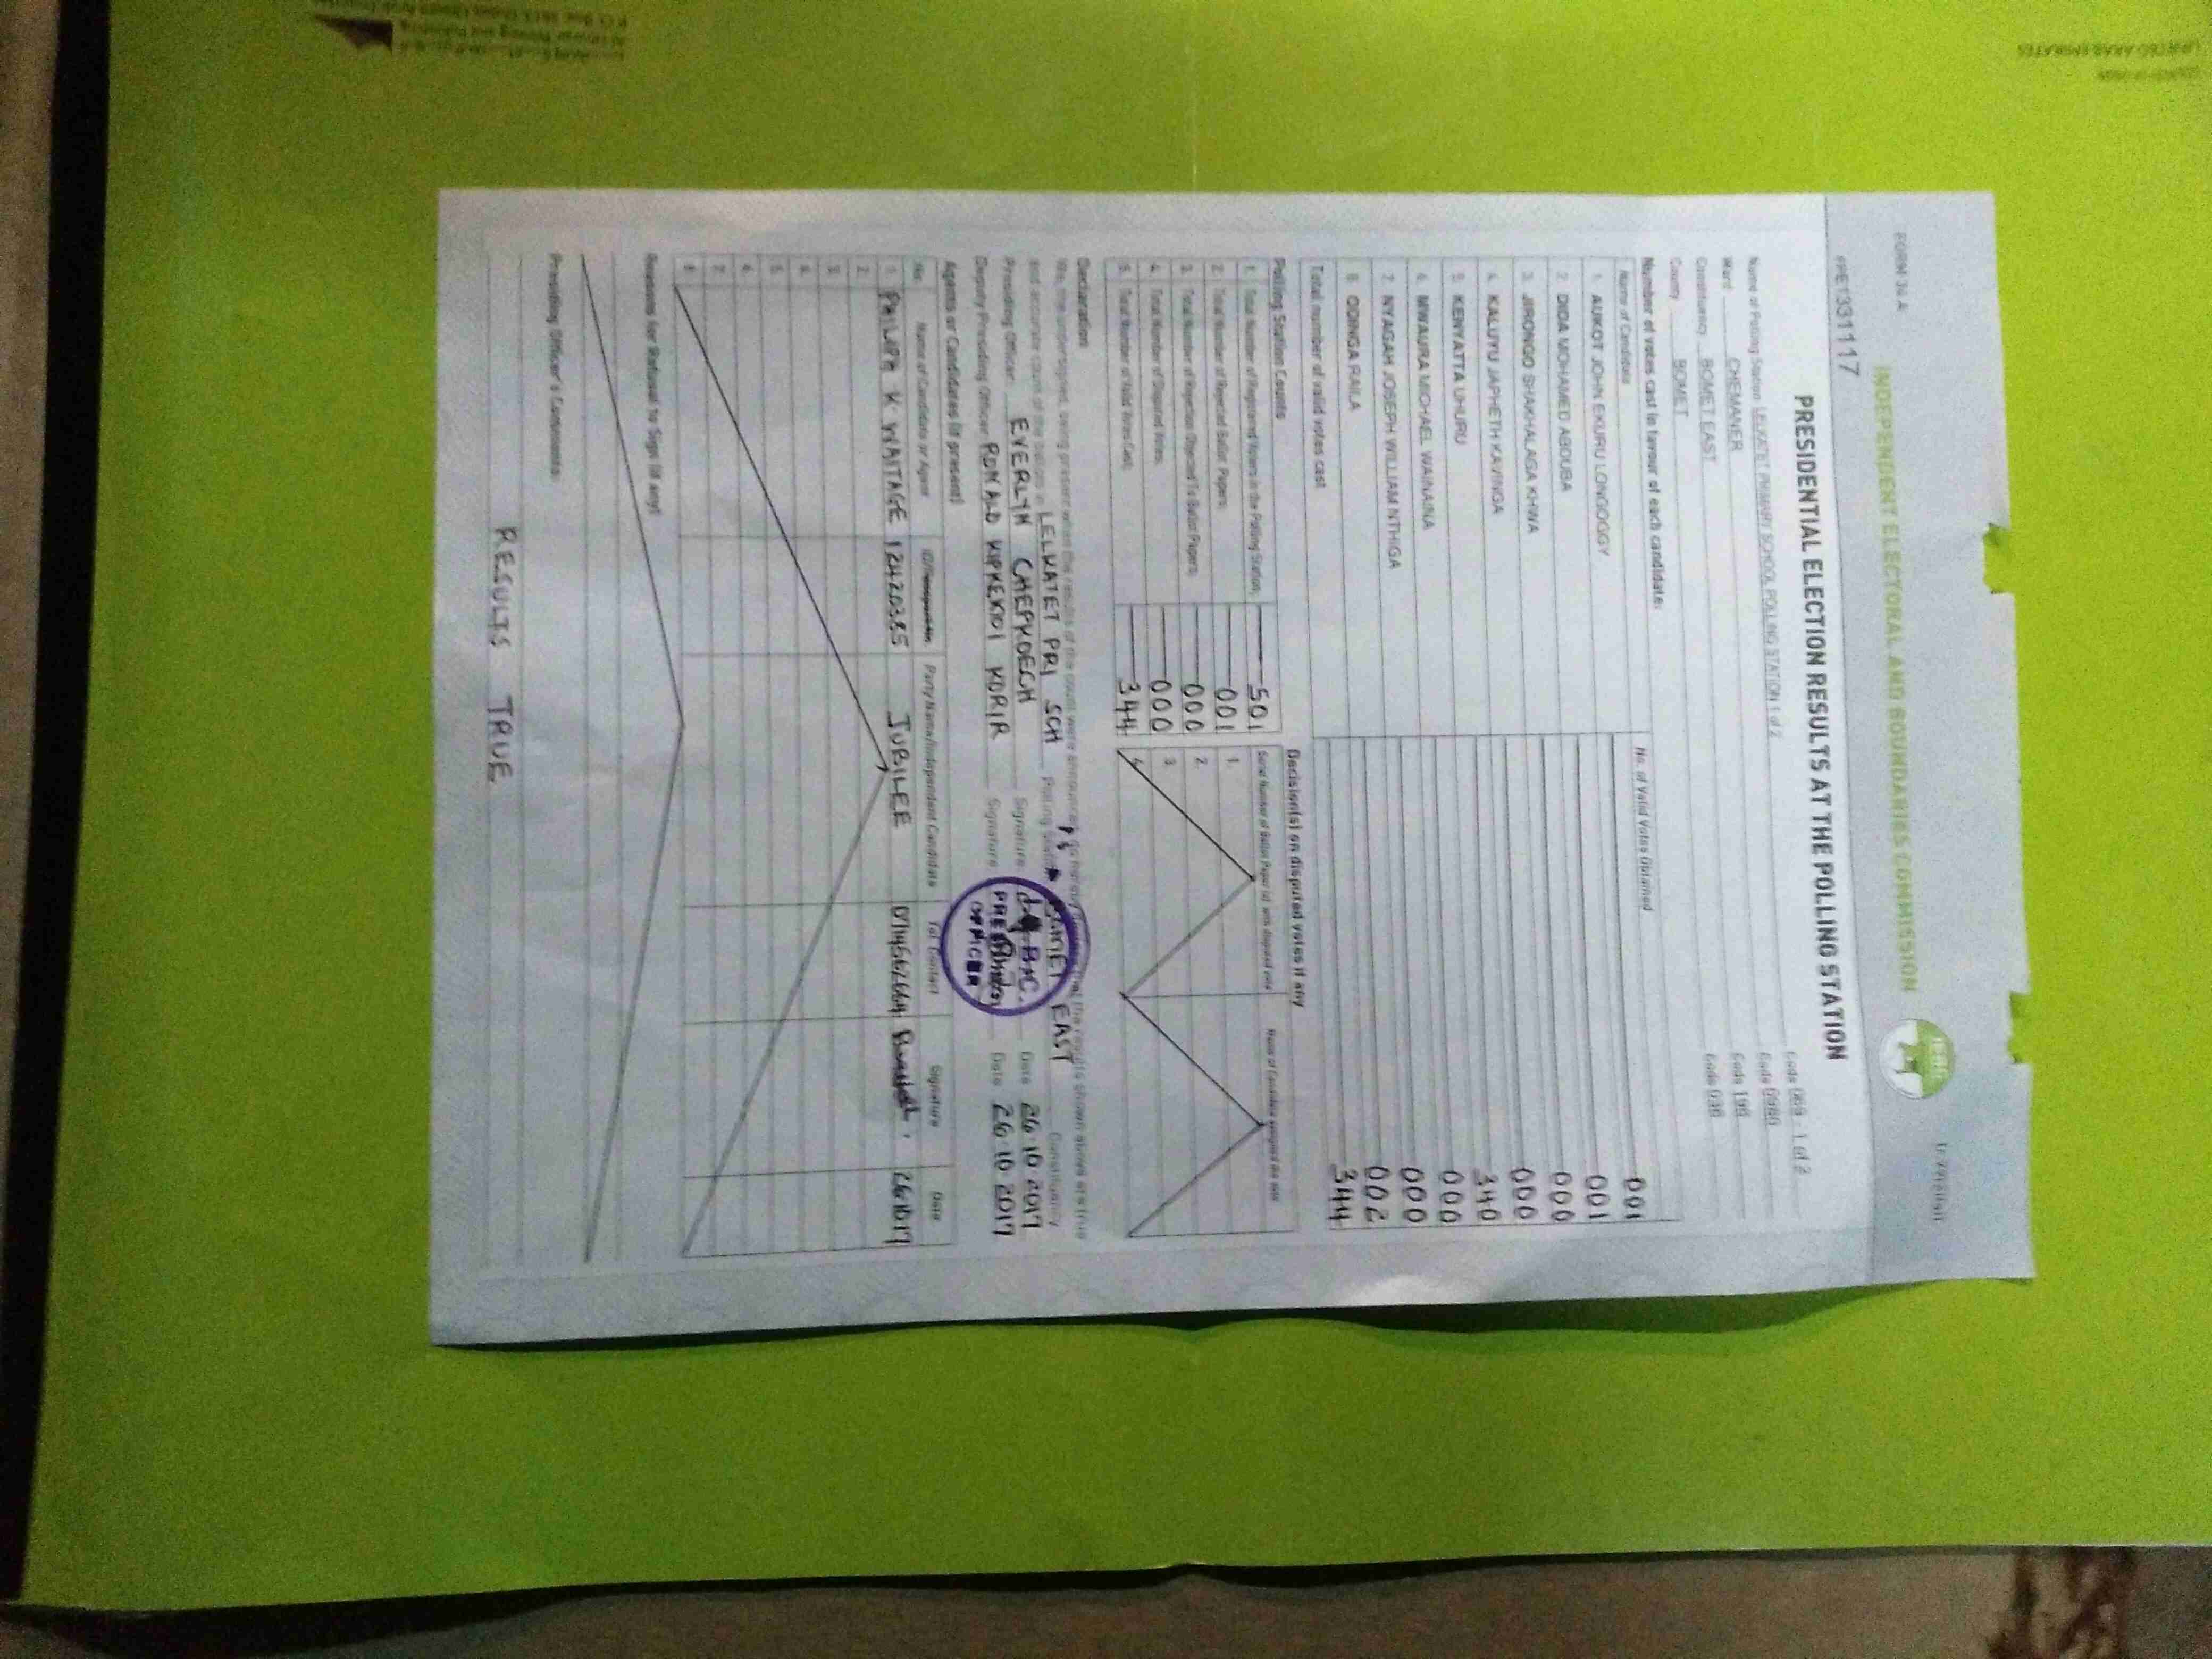 FORM 34 A
INDEPENDENT ELECTORAL AND BOUNDARIES COMMISSION
PPE1331117
PRESIDENTIAL ELECTION RESULTS AT THE POLLING STATION
Name of Polling Station LELKATET PRIMARY SCHOOL POLLING STATION 1 of 2 Code 069 - 1 of 2
Ward CHEMANER Code 0980
Constituency BOMET EAST Code 196
County BOMET Code 036
Number of votes cast in favour of each candidate:
Name of Candidate No. of Valid Votes Obtained
1. AUKOT JOHN EKURU LONGOGGY 001
2. DIDA MOHAMED ABDUBA 001
3. JIRONGO SHAKHALAGA KHWA 000
4. KALUYU JAPHETH KAVINGA 000
5. KENYATTA UHURU 340
6. MWAURA MICHAEL WAINAINA 000
7. NYAGAH JOSEPH WILLIAM NTHIGA 000
8. ODINGA RAILA 002
Total number of valid votes cast 344
Polling Station Counts
1. Total Number of Registered Voters in the Polling Station; 501
2. Total Number of Rejected Ballot Papers; 001
3. Total Number of Rejection Objected To Ballot Papers; 000
4. Total Number of Disputed Votes; 000
5. Total Number of Valid Votes Cast; 344
Decision(s) on disputed votes if any
Serial Number of Ballot Paper (s) with disputed vote Name of Candidate assigned the vote
1.
2.
3.
4.
Declaration
We, the undersigned, being present when the results of the count were announced, do hereby declare that the results shown above are true
and accurate count of the ballots in LELKATET PRI SCH Polling Station BOMET EAST Constituency
Presiding Officer: EVERLYN CHEPKOECH Signature Date 26 10 2017
Deputy Presiding Officer: RONALD KIPKEMOI KORIR Signature Date 26 10 2017
PRESIDING
OFFICER
Agents or Candidates (if present)
No. Name of Candidate or Agent Party Name/Independent Candidate Tel. Contact Signature Date
1. PHILIPH K WAITAGE 12420335 JUBILEE 26 10 17
2.
3.
4.
5.
6.
7.
8.
Reasons for Refusal to Sign (if any)
Presiding Officer's Comments:
RESULTS TRUE
UNITED ARAB EMIRATES